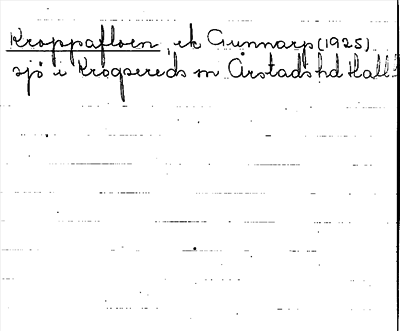 Kroppafloen, ek Gunnarp (1925)
sjö i Krogsereds sn Årstads hd Hall.